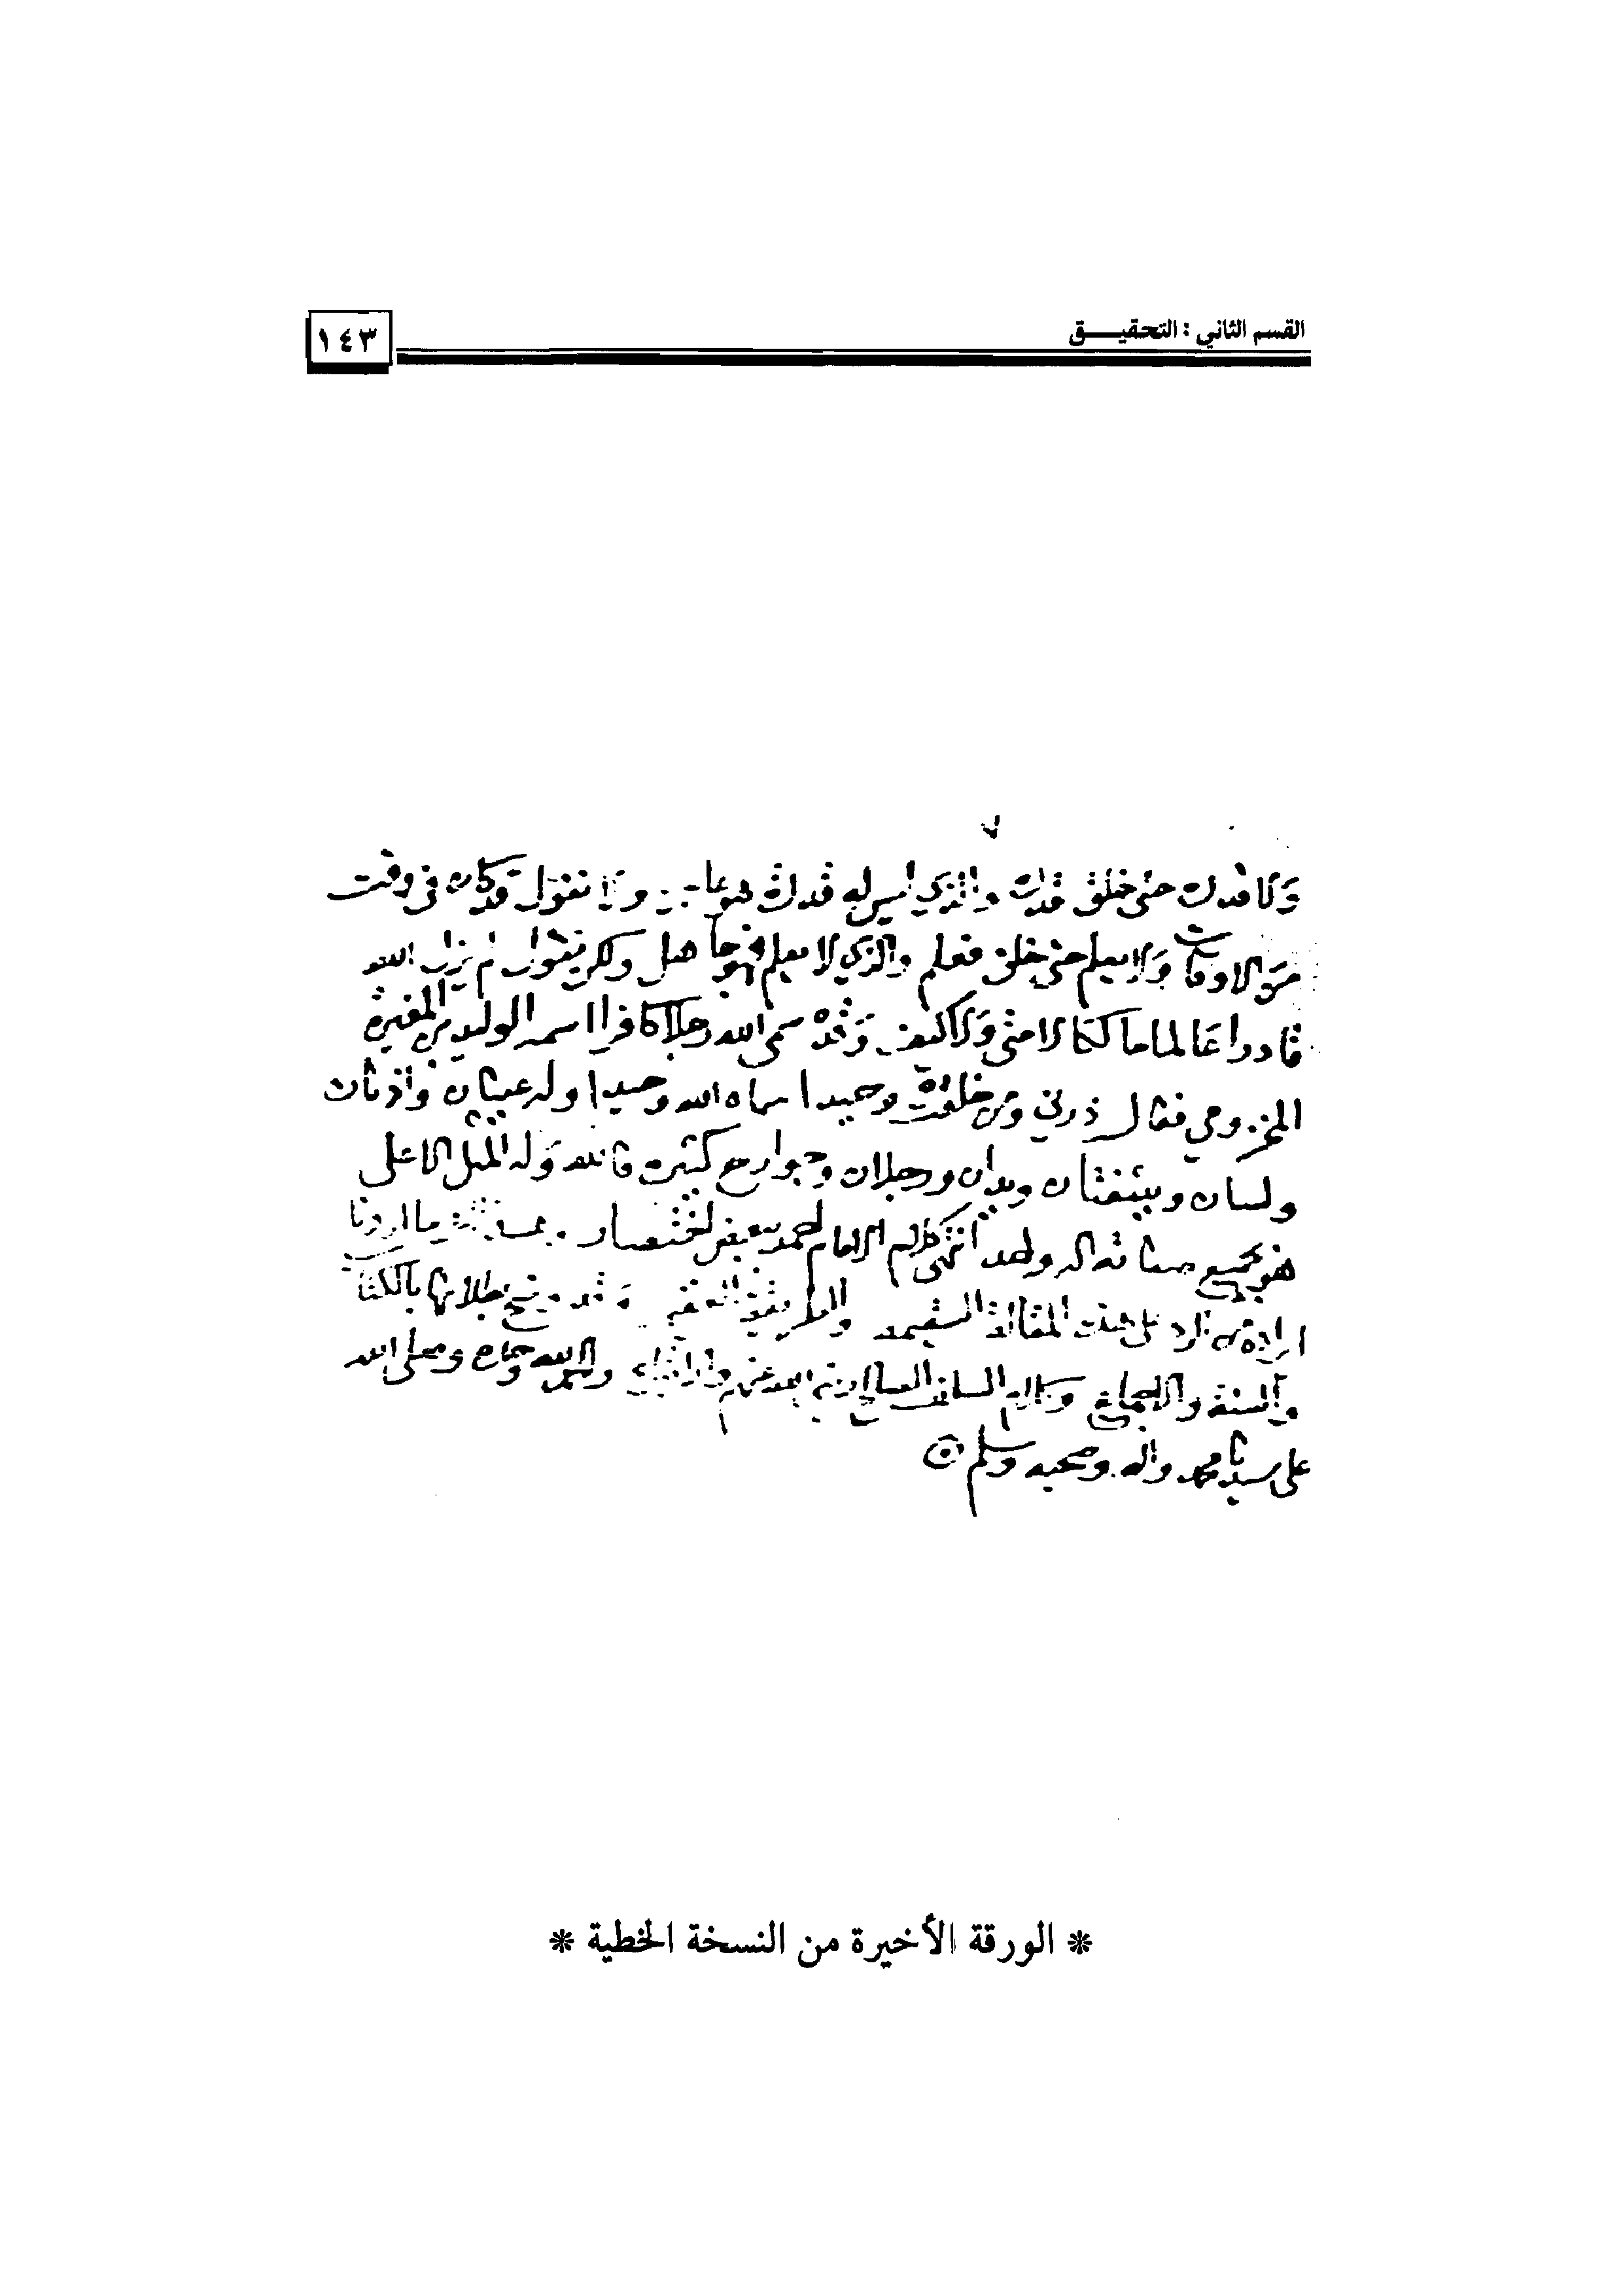 القسم الثاني : التحقيـــق
١٤٣
ولا قدرة حتى خلق قدرة والذي ليس له قدرة هو عاجز ولا نقول قد كان في وقت
من الاوقات ولا يعلم حتى خلق فعلم والذي لا يعلم فهو جاهل ولكن نقول لم يزل الله
قادرا عالما مالكا لا متى ولا كيف وقد سمى الله رجلا كافرا اسمه الوليد بن المغيرة
المخزومي فقال ذرني ومن خلقت وحيدا سماه الله وحيدا وله عينان واذنان
ولسان وشفتان ويدان ورجلان وجوارح كثيره فالله وله المثل الاعلى
هو بجميع صفاته اله واحد انتهى كلام الامام احمد ببعض اختصار ما اردنا
ايراده من الرد على هذه المقالة السقيمه والطريقة العقيمه وقد وضح بطلانها بالكتاب
والسنة والاجماع وكلام السلف الصالح والله وصلى الله
على سيدنا محمد واله وصحبه وسلم
* الورقة الأخيرة من النسخة الخطية *